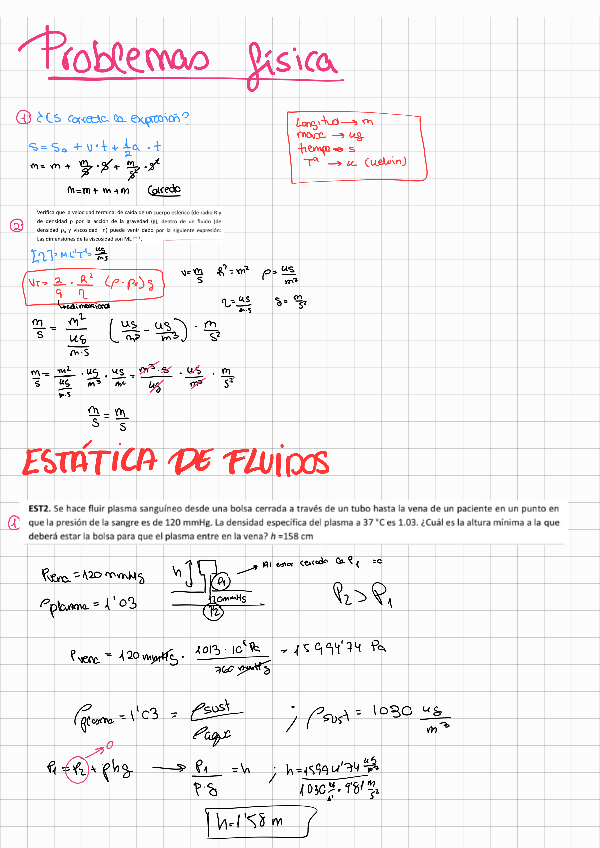 Problemas física
① ¿Es correcta la expresión?
S = S₀ + v·t + 1/2 a · t
m = m + m/s · s + m/s² · s²
m = m + m + m Correcto
Longitud → m
masa → kg
tiempo → s
Tª → K (Kelvin)
② Verifica que la velocidad terminal de caída de un cuerpo esférico (de radio R y
de densidad ρ por la acción de la gravedad (g), dentro de un fluido (de
densidad ρ₀ y viscosidad η) puede venir dado por la siguiente expresión:
Las dimensiones de la viscosidad son ML⁻¹T⁻¹.
[η] = ML⁻¹T⁻¹ = kg/m·s
V_T = 2/9 · R²/η (ρ - ρ₀) g
adimensional
v = m/s R² = m² ρ = kg/m³
η = kg/m·s g = m/s²
m/s = m²/(kg/m·s) (kg/m³ - kg/m³) · m/s²
m/s = m²/(kg/m·s) · kg/m³ · kg/m³ = m³·s/kg · kg/m³ · m/s²
m/s = m/s
ESTÁTICA DE FLUIDOS
① EST2. Se hace fluir plasma sanguíneo desde una bolsa cerrada a través de un tubo hasta la vena de un paciente en un punto en
que la presión de la sangre es de 120 mmHg. La densidad específica del plasma a 37 °C es 1.03. ¿Cuál es la altura mínima a la que
deberá estar la bolsa para que el plasma entre en la vena? h =158 cm
P vena = 120 mmHg
ρ plasma = 1'03
h
P₁
120mmHg
P2
Al estar cerrada la P₁ = 0
P₂ > P₁
P vena = 120 mmHg · 1'013 · 10⁵ Pa / 760 mmHg = 15994'74 Pa
ρ plasma = 1'03 = ρ sust / ρ agua ; ρ sust = 1030 kg/m³
P₁ = P₂ + ρhg → P₁/ρ·g = h ; h = 15994'74 / 1030 · 9'81 m/s²
0
h = 1'58 m